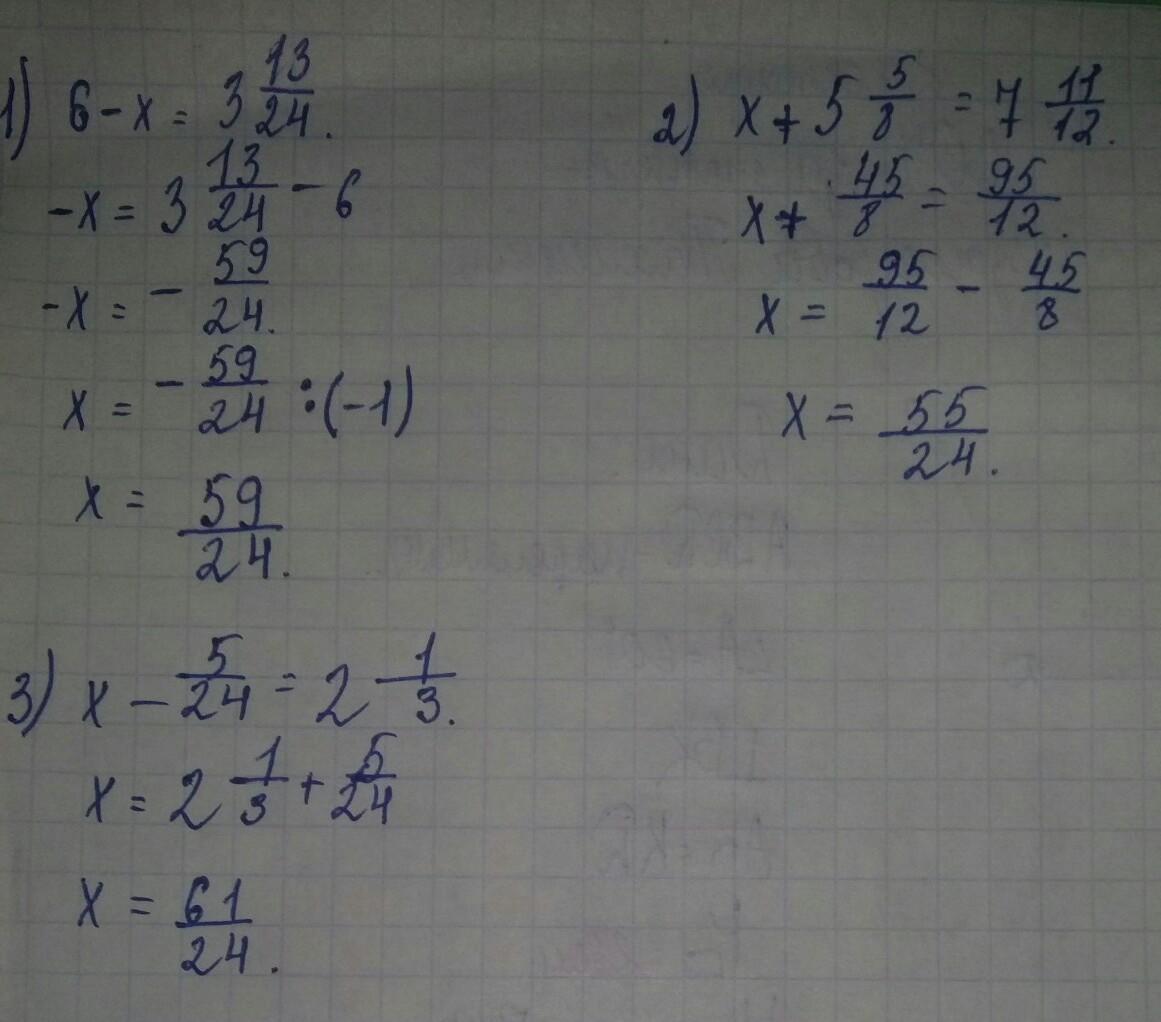 1) 6 - x = 3 13/24.
-x = 3 13/24 - 6
-x = - 59/24.
x = - 59/24 : (-1)
x = 59/24.
2) x + 5 5/8 = 7 11/12.
x + 45/8 = 95/12.
x = 95/12 - 45/8
x = 55/24.
3) x - 5/24 = 2 1/3.
x = 2 1/3 + 5/24
x = 61/24.